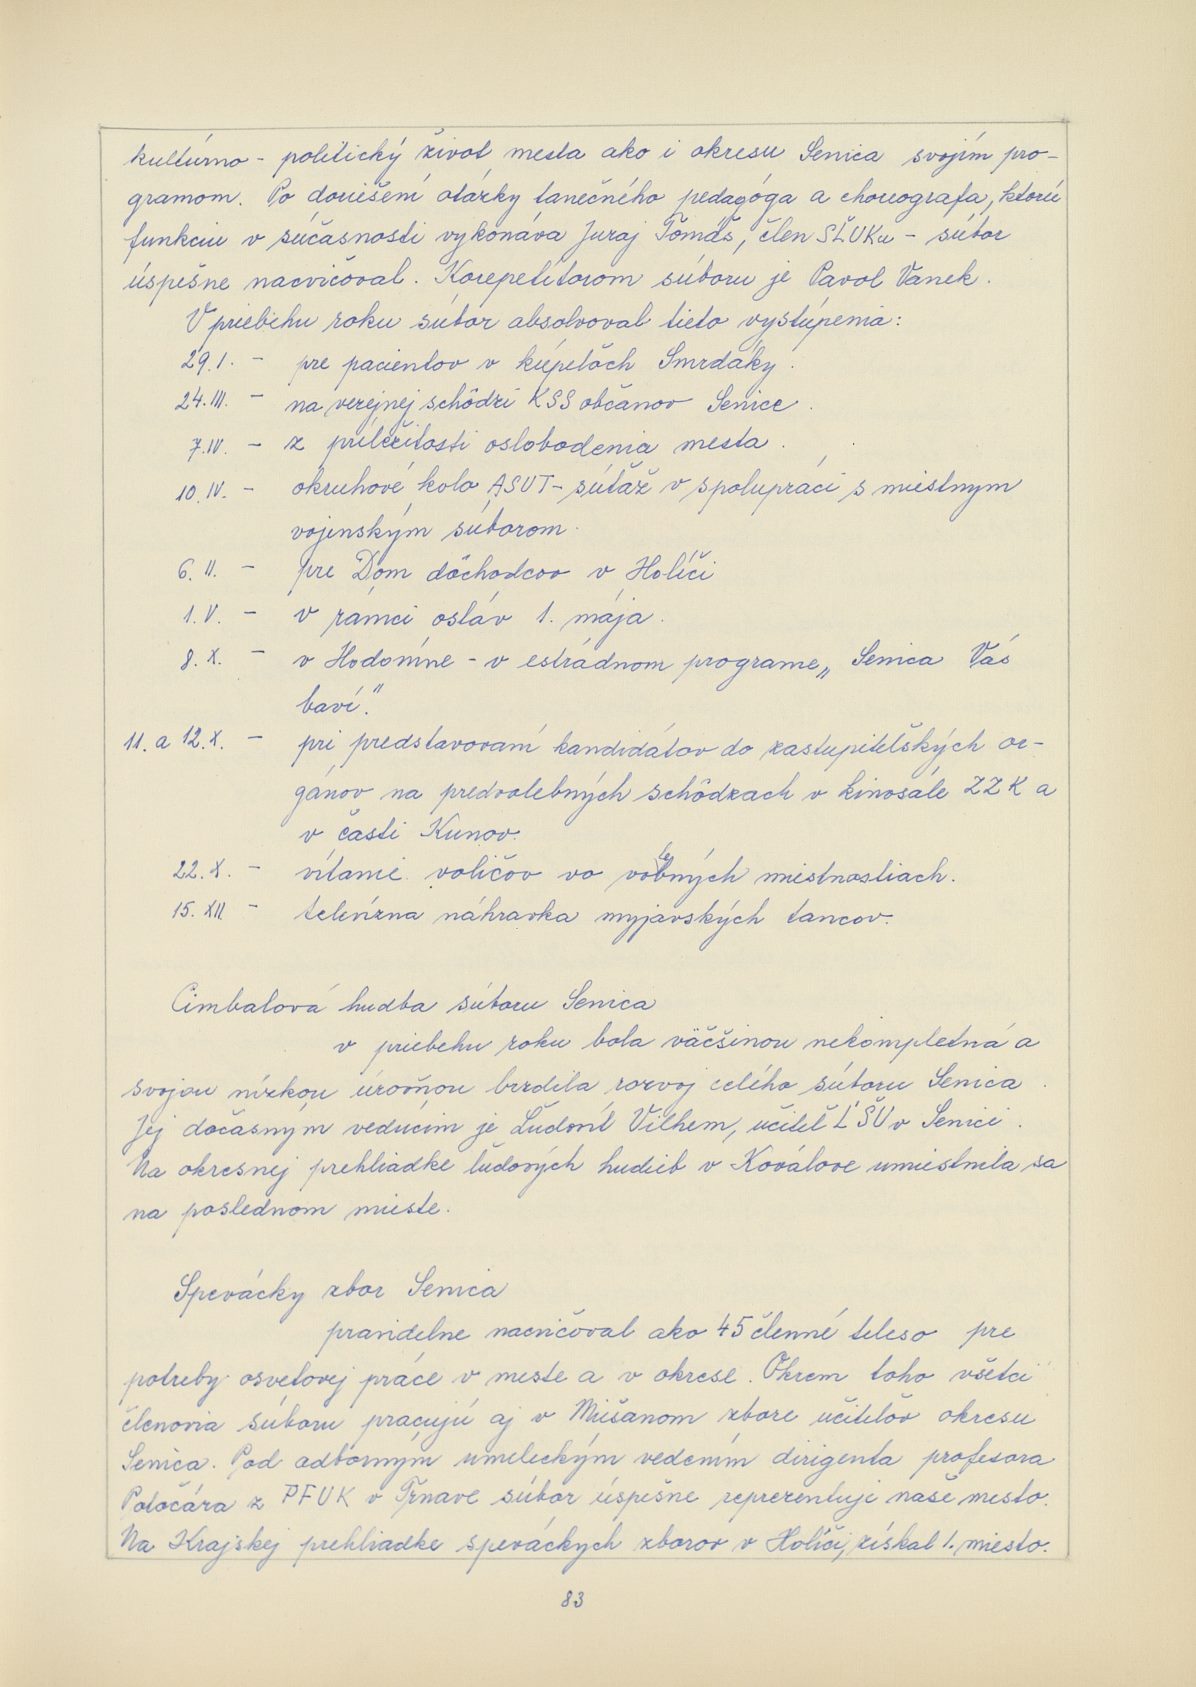 kultúrno - politický život mesta ako i okresu Senica svojím pro-
gramom. Po doriešení otázky tanečného pedagóga a choreografa, ktorú
funkciu v súčasnosti vykonáva Juraj Tomáš, člen SĽUKu - súbor
úspešne nacvičoval. Korepetítorom súboru je Pavol Vanek.
V priebehu roku súbor absolvoval tieto vystúpenia:
29.I. - pre pacientov v kúpeľoch Smrdáky.
24.III. - na verejnej schôdzi KSS občanov Senice.
7.IV. - z príležitosti oslobodenia mesta.
10.IV. - okruhové kolo ASUT - súťaž v spolupráci s miestnym
vojenským súborom.
6.II. - pre Dom dôchodcov v Holíči
1.V. - v rámci osláv 1. mája.
8.X. - v Hodoníne - v estrádnom programe „Senica Vás
baví."
11. a 12.X. - pri predstavovaní kandidátov do zastupiteľských or-
gánov na predvolebných schôdzach v kinosále ZZK a
v časti Kunov.
22.X. - vítanie voličov vo volebných miestnostiach.
15.XII - televízna náhravka myjavských tancov.
Cimbalová hudba súboru Senica
v priebehu roku bola väčšinou nekompletná a
svojou nízkou úrovňou brzdila rozvoj celého súboru Senica.
Jej dočasným vedúcim je Ľudovít Vilhem, učiteľ ĽŠU v Senici.
Na okresnej prehliadke ľudových hudieb v Koválove umiestnila sa
na poslednom mieste.
Spevácky zbor Senica
pravidelne nacvičoval ako 45 členné teleso pre
potreby osvetovej práce v meste a v okrese. Okrem toho všetci
členovia súboru pracujú aj v Miešanom zbore učiteľov okresu
Senica. Pod odborným umeleckým vedením dirigenta profesora
Potočára z PFUK v Trnave súbor úspešne reprezentuje naše mesto.
Na Krajskej prehliadke speváckych zborov v Holíči, získal 1. miesto.
83